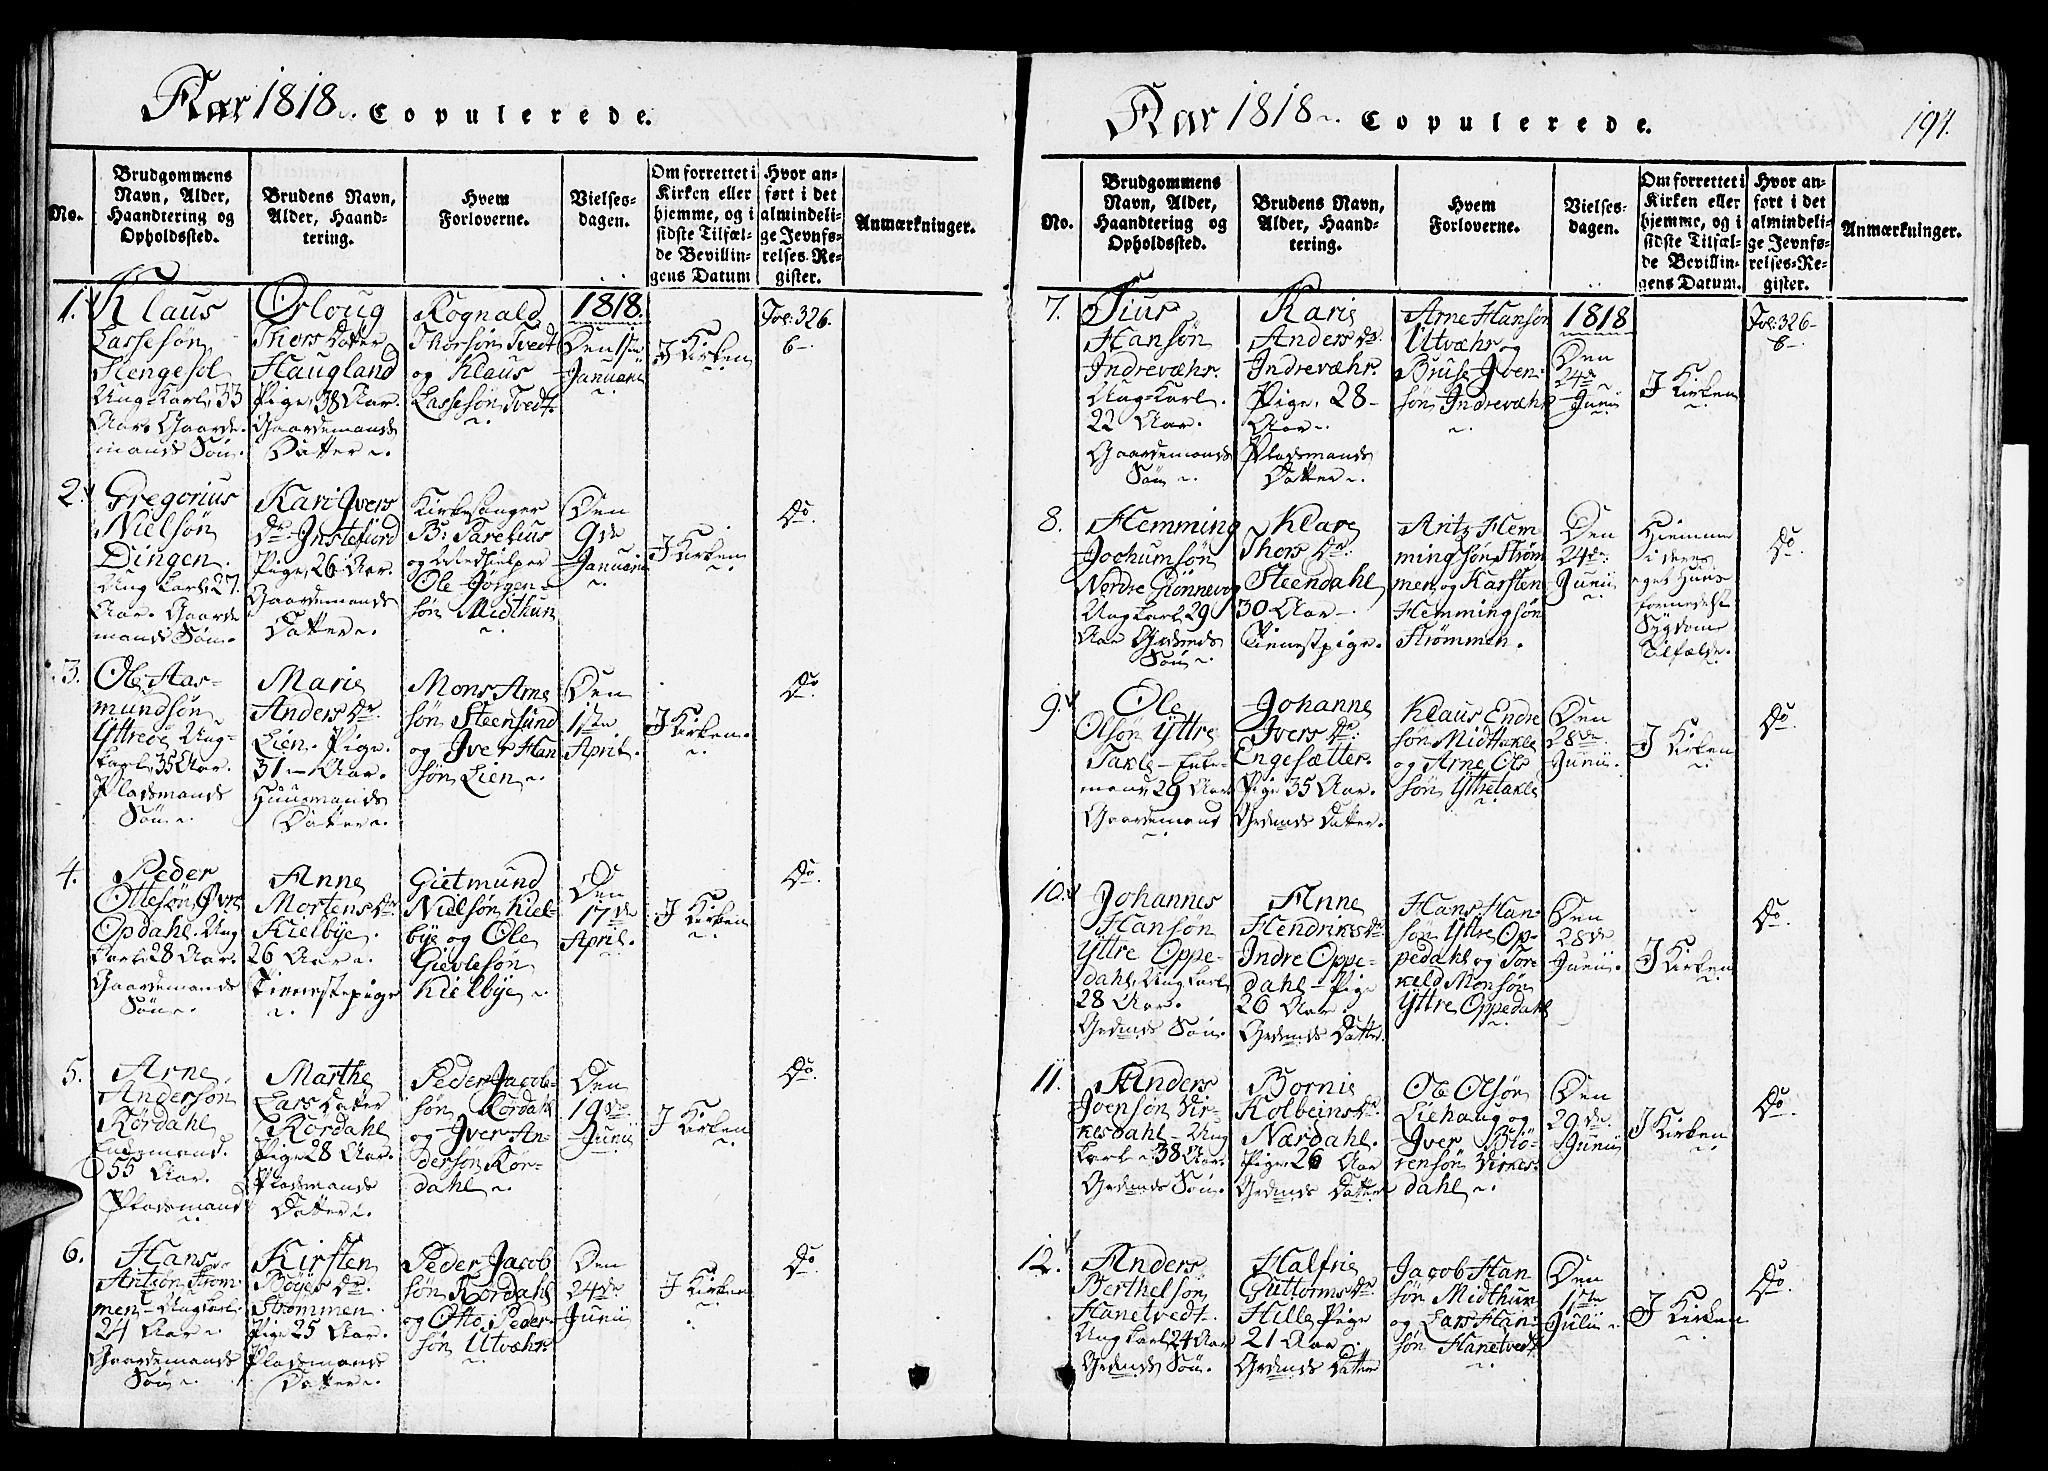 Aar 1818. Copulerede.
No.
Brudgommens
Navn, Alder,
Haandtering og
Opholdssted.
Brudens Navn,
Alder, Haand-
tering.
Hvem
Forloverne.
Vielses-
dagen.
Om forrettet i
Kirken eller
hjemme, og i
sidste Tilfæl-
de Bevillin-
gens Datum
Hvor an-
ført i det
almindeli-
ge Jevnfø-
relses-Re-
gister.
Anmærkninger.
1.
Klaus
Lassesøn
Hengesol
Ung Karl, 33
Aar. Gaarde-
mands Søn.
Osloug
Thors Datter
Haugland
Pige, 38 Aar.
Gaardemands
Datter.
Rognald
Thorsøn Tvedt
og Klaus
Lassesøn Tvedt
1818.
Den 1ste
Januarii
I Kirken
Fol: 326.
6
2.
Gregorius
Nielsøn
Dingen.
Ung Karl, 27
Aar. Gaarde
mands Søn.
Kari Ivers
Dr. Instefiord
Pige, 26 Aar.
Gaardemands
Datter.
Kirkesanger
B: Parelius
og Medhjelper
Ole Jørgen-
søn Midthun
Den
9de
Januarii
I Kirken
Do.
3.
Ole Aas-
mundsøn
Yttreøe Ung-
karl, 35 Aar.
Pladsmands
Søn.
Marie
Anders Dr.
Lien. Pige.
31 Aar.
Huusmands
Datter.
Mons Arne
søn Steensund
og Iver Han
søn Lien
Den
1ste
April.
I Kirken.
Do.
4.
Peder
Ottesøn, Øvre
Opdahl. Ung
karl, 28 Aar.
Gaardemands
Søn.
Anne
Mortens Dr.
Kielbye.
26 Aar.
Tienestepige
Gietmund
Nielsøn Kiel-
bye og Ole
Gievlesøn
Kielbye
Den
17de
April.
I Kirken
Do.
5.
Arne
Andersøn
Rørdahl
Enkemand.
55 Aar.
Pladsmand
Marthe
Lars Datter
Rørdahl
Pige 28 Aar.
Pladsmands
Datter.
Peder Jacob-
søn Rørdahl
og Iver An-
dersøn Rør-
dahl
Den
19de
Junii
I Kirken
Do.
6.
Hans
Antsøn Strøm-
men Ung karl
24 Aar
Gaardemands
Søn
Kirsten
Bøyes Dr.
Strømmen
Pige 25 Aar.
Pladsmands
Datter
Peder Jacob
søn Rørdahl
og Otto Peder-
søn Utvæhr
Den
24de
Junii
I Kirken
Do.
Aar 1818. Copulerede.
194.
No.
Brudgommens
Navn, Alder,
Haandtering og
Opholdssted.
Brudens Navn,
Alder, Haand-
tering.
Hvem
Forloverne.
Vielses-
dagen.
Om forrettet i
Kirken eller
hjemme, og i
sidste Tilfæl-
de Bevillin-
gens Datum.
Hvor an-
ført i det
almindeli-
ge Jevnfø-
relses-Re-
gister.
Anmærkninger.
7.
Siur
Hansøn
Indrevæhr.
Ung Karl.
22 Aar.
Gaardemands
Søn
Karie
Anders Dr.
Indrevæhr.
Pige, 28
Aar
Pladsmands
Datter
Arne Hansøn
Utvæhr og
Bruse Iven-
søn Indrevæhr
1818
Den
24de
Junii
I Kirken
Fol: 326
6
8.
Hemming
Jochumsøn
Nordre Giønnevog
Ung karl, 29
Aar Grdmds
Søn
Klare
Thors Dr.
Steendahl
30 Aar
Tienestpige.
Antz Hem
mingsøn Strøm
men og Karsten
Hemmingsøn
Strømmen.
Den
24de
Junii
Hjemme
i deres
eget Huus
formedelst
Sygdoms
Tilfælde.
Do.
9.
Ole
Olsøn Yttre
Takle Enke-
mand 29 Aar
Gaardemand
Johanne
Ivers Dr.
Engesætter.
Pige 35 Aar.
Grdmds Datter.
Klaus Endre
søn Midttakle
og Arne Ole
søn Yttretakle
Den
28de
Junii
I Kirken
Do.
10.
Johannes
Hansøn
Yttre Oppe-
dahl, Ung karl
28 Aar.
Grdmds Søn
Anne
Hendriks Dr.
Indre Oppe-
dahl Pige
26 Aar
Grdmds Datter.
Hans Han-
søn Yttre Op-
pedahl og Tor-
keld Monsøn
Yttre Oppedahl
Den
28de
Junii
I Kirken
Do.
11.
Anders
Joensøn Vir-
kesdahl Ung
karl 38 Aar.
Grdmds Søn.
Bornie
Kolbeins Dr.
Nærdahl.
Pige, 26 Aar
Grdmds Datter
Ole Olsøn
Liehaug og
Iver Blø-
rensøn Virkes-
dahl
Den
29de
Junii
I Kirken
Do.
12.
Anders
Berthelsøn
Hanetvedt.
Ung karl, 24 Aar
Grdmds Søn.
Halfrie
Guttorms Dr.
Helle Pige
21 Aar
Grdmds Datter
Jacob Han
søn Midthun
og Lars Han-
søn Hanetvedt
Den
11te
Julii
I Kirken
Do.